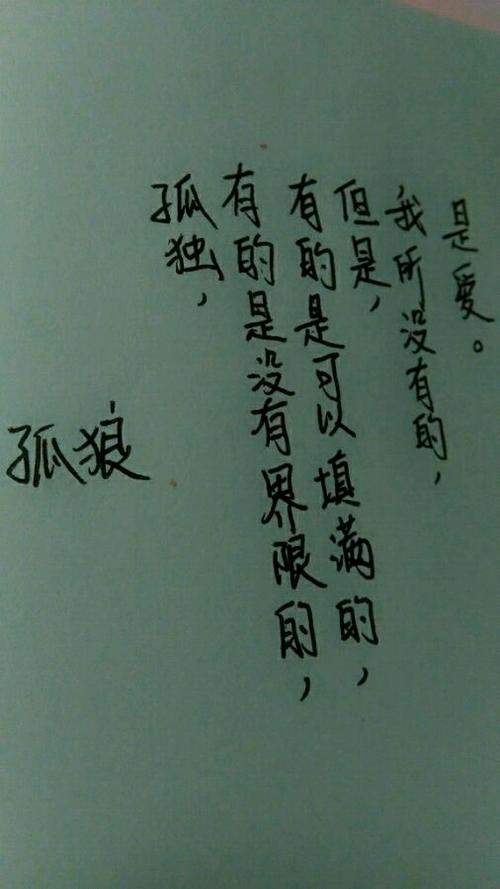 孤狼
孤独，
有的是没有界限的，
有的是可以填满的，
但是，
我所没有的，
是爱。